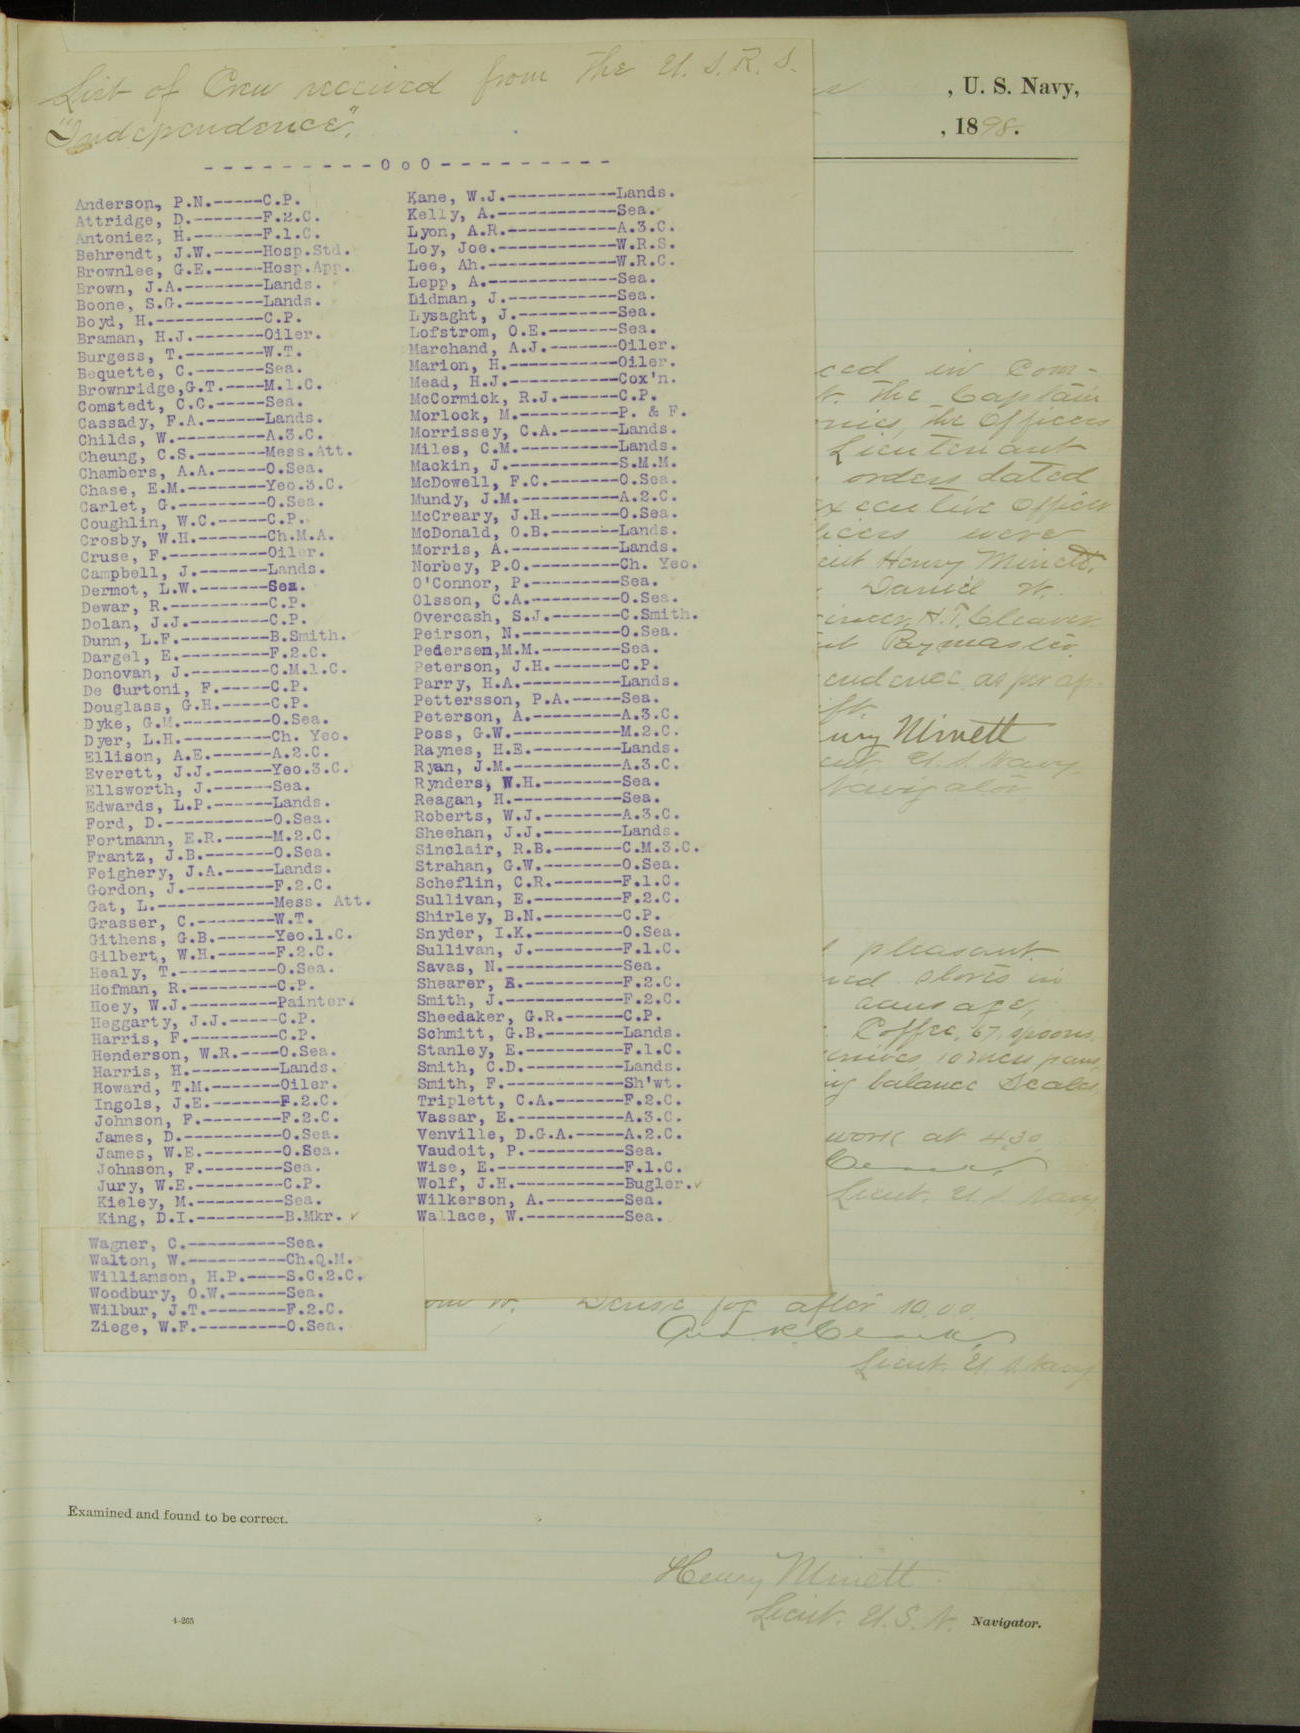 List of Crew received from the U.S.R.S.
"Independence".
- - - - - - - - - - O o O - - - - - - - - - -
Anderson, P.N.-----C.P.
Attridge, D.-------F.2.C.
Antoniez, H.-------F.1.C.
Behrendt, J.W.-----Hosp.Std.
Brownlee, G.E.-----Hosp.App.
Brown, J.A.--------Lands.
Boone, S.G.--------Lands.
Boyd, H.-----------C.P.
Braman, H.J.-------Oiler.
Burgess, T.--------W.T.
Bequette, C.-------Sea.
Brownridge,G.T.----M.1.C.
Comstedt, C.C.-----Sea.
Cassady, F.A.------Lands.
Childs, W.---------A.3.C.
Cheung, C.S.-------Mess.Att.
Chambers, A.A.-----O.Sea.
Chase, E.M.--------Yeo.3.C.
Carlet, G.---------O.Sea.
Coughlin, W.C.-----C.P.
Crosby, W.H.-------Ch.M.A.
Cruse, F.----------Oiler.
Campbell, J.-------Lands.
Dermot, L.W.-------Sea.
Dewar, R.----------C.P.
Dolan, J.J.--------C.P.
Dunn, L.F.---------B.Smith.
Dargel, E.---------F.2.C.
Donovan, J.--------C.M.1.C.
De Curtoni, F.-----C.P.
Douglass, G.H.-----C.P.
Dyke, G.M.---------O.Sea.
Dyer, L.H.---------Ch. Yeo.
Ellison, A.E.------A.2.C.
Everett, J.J.------Yeo.3.C.
Ellsworth, J.------Sea.
Edwards, L.P.------Lands.
Ford, D.-----------O.Sea.
Fortmann, E.R.-----M.2.C.
Frantz, J.B.-------O.Sea.
Feighery, J.A.-----Lands.
Gordon, J.---------F.2.C.
Gat, L.------------Mess. Att.
Grasser, C.--------W.T.
Githens, G.B.------Yeo.1.C.
Gilbert, W.H.------F.2.C.
Healy, T.----------O.Sea.
Hofman, R.---------C.P.
Hoey, W.J.---------Painter.
Heggarty, J.J.-----C.P.
Harris, F.---------C.P.
Henderson, W.R.----O.Sea.
Harris, H.---------Lands.
Howard, T.M.-------Oiler.
Ingols, J.E.-------F.2.C.
Johnson, F.--------F.2.C.
James, D.----------O.Sea.
James, W.E.--------O.Sea.
Johnson, F.--------Sea.
Jury, W.E.---------C.P.
Kieley, M.---------Sea.
King, D.I.---------B.Mkr. ✓
Wagner, C.----------Sea.
Walton, W.----------Ch.Q.M.
Williamson, H.P.----S.C.2.C.
Woodbury, O.W.------Sea.
Wilbur, J.T.--------F.2.C.
Ziege, W.F.---------O.Sea.
Kane, W.J.-----------Lands.
Kelly, A.------------Sea.
Lyon, A.R.-----------A.3.C.
Loy, Joe.------------W.R.S.
Lee, Ah.-------------W.R.C.
Lepp, A.-------------Sea.
Lidman, J.-----------Sea.
Lysaght, J.----------Sea.
Lofstrom, O.E.-------Sea.
Marchand, A.J.-------Oiler.
Marion, H.-----------Oiler.
Mead, H.J.-----------Cox'n.
McCormick, R.J.------C.P.
Morlock, M.----------P. & F.
Morrissey, C.A.------Lands.
Miles, C.M.----------Lands.
Mackin, J.-----------S.M.M.
McDowell, F.C.-------O.Sea.
Mundy, J.M.----------A.2.C.
McCreary, J.H.-------O.Sea.
McDonald, O.B.-------Lands.
Morris, A.-----------Lands.
Norbey, P.O.---------Ch. Yeo.
O'Connor, P.---------Sea.
Olsson, C.A.---------O.Sea.
Overcash, S.J.-------C.Smith.
Peirson, N.----------O.Sea.
Pedersen,M.M.--------Sea.
Peterson, J.H.-------C.P.
Parry, H.A.----------Lands.
Pettersson, P.A.-----Sea.
Peterson, A.---------A.3.C.
Poss, G.W.-----------M.2.C.
Raynes, H.E.---------Lands.
Ryan, J.M.-----------A.3.C.
Rynders, W.H.--------Sea.
Reagan, H.-----------Sea.
Roberts, W.J.--------A.3.C.
Sheehan, J.J.--------Lands.
Sinclair, R.B.-------C.M.3.C.
Strahan, G.W.--------O.Sea.
Scheflin, C.R.-------F.1.C.
Sullivan, E.---------F.2.C.
Shirley, B.N.--------C.P.
Snyder, I.K.---------O.Sea.
Sullivan, J.---------F.1.C.
Savas, N.------------Sea.
Shearer, E.----------F.2.C.
Smith, J.------------F.2.C.
Sheedaker, G.R.------C.P.
Schmitt, G.B.--------Lands.
Stanley, E.----------F.1.C.
Smith, C.D.----------Lands.
Smith, F.------------Sh'wt.
Triplett, C.A.-------F.2.C.
Vassar, E.-----------A.3.C.
Venville, D.G.A.-----A.2.C.
Vaudoit, P.----------Sea.
Wise, E.-------------F.1.C.
Wolf, J.H.-----------Bugler.✓
Wilkerson, A.--------Sea.
Wallace, W.----------Sea.
, U. S. Navy,
, 1898.
in Com-
the Captain
the Officers
Lieutenant
orders dated
Officer
were
Henry Minett,
Daniel W.
H.T. Cleaver
Paymaster
as per ap-
Minett
U.S. Navy
Navigator
pleasant.
stores in
Coffee, 67 spoons,
10 mess pans,
balance Scales
work at 4.30
Lieut. U.S. Navy
Dense fog after 10.00.
Lieut. U.S. Navy
Examined and found to be correct.
Henry Minett
Lieut. U.S.N. Navigator.
4-265